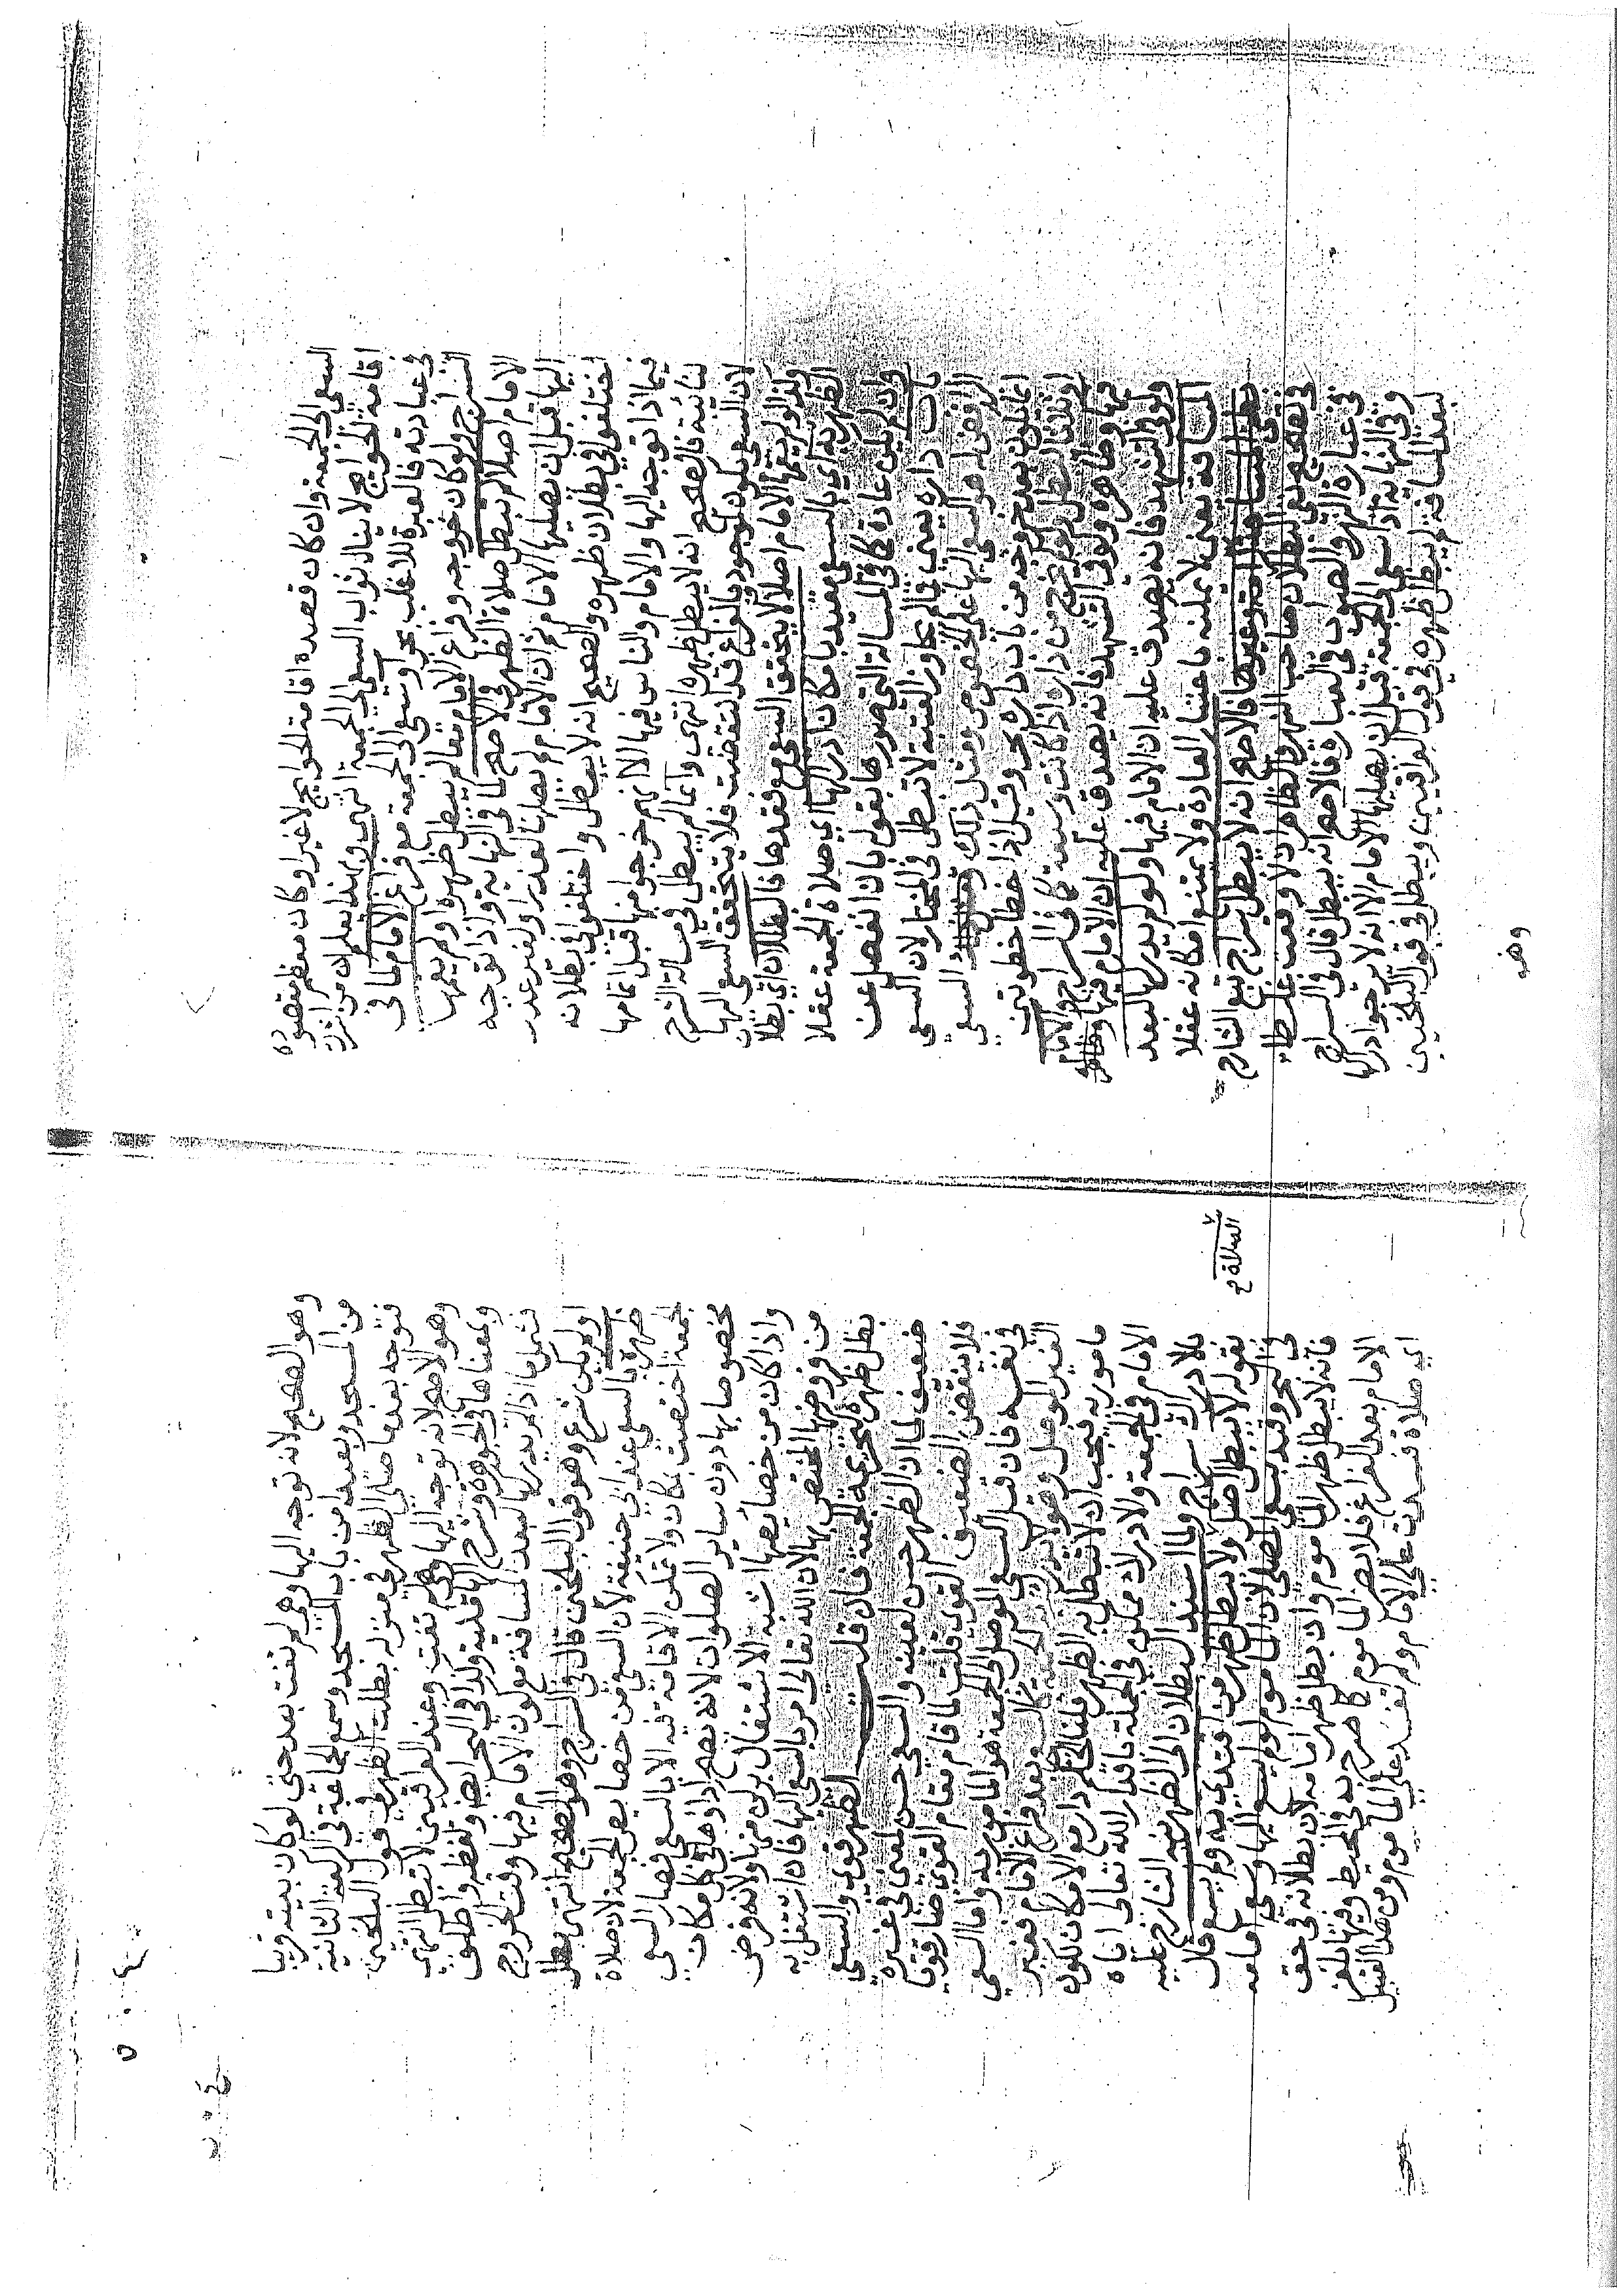 السعي الى الجمعة وان كان قصده اقامة الحوايج لا غير او كان معظم مقصوده
اقامة الحوايج لا ينال ثواب السعي الى الجمعة انتهى وبهذا يعلم ان من اشرك
في عبادته فالعبرة للاغلب بحر او سعى الى الجمعة مع فراغ الامام لما في
السراج ولو كان خروجه وفراغ الامام معا لم يبطل ظهره او لم يقمها
الامام اصلا لم تبطل صلاة الظهر في الاصح لما في النهاية واذا توجه
اليها قبل ان يصليها الامام ثم ان الامام لم يصلها لعذر او لغير عذر
اختلفوا في بطلان ظهره والصحيح انه لا يبطل واختلفوا في بطلانه
فيما اذا توجه اليها والامام والناس فيها الا انهم خرجوا منها قبل اتمامها
لنائبة فالصحيح انه لا يبطل ظهره انتهى وانما لم يبطل في مسالة الشرح
لان السعي يكون بالفراغ قد انقضت فلا يتحقق السعي اليها
وكذا لو لم يقمها الامام اصلا لا يتحقق السعي مع فقدها فالبطلان اي بطلان
الظهر به اي بالسعي مقيد بامكان ادراكها اي صلاة الجمعة عقلا
وان لم يكن عادة كما في المسالة التي صورها بقوله بان انفصل عن
باب داره يعني فما لم يجاوز العتبة لا تبطل في المختار لان السعي
الرافض له هو السعي اليها على الخصوص ومثل ذلك السعي
انما يكون بعد خروجه من باب داره بحر وقيل اذا خطا خطوتين
او ثلاثا تبطل لو لم يخرج من داره اذا كانت واسعة كما في السراج والامام
فيها وظاهره ولو في التشهد فانه يصدق عليه ان الامام فيها وظاهره
ولو في التشهد فانه يصدق عليه ان الامام فيها ولو لم يدركها لبعد
المسافة يعني لا يمكنه العادة ولا يمتنع امكانه عقلا
المسافة وغيرها فالاصح انه لا يبطل سراج تبع الشارح
في تصحيح نفي البطلان صاحب النهر والظاهر ان لا وقعت غلطا
في عبارة النهر والصواب في العبارة فالاصح انه يبطل قال في السراج
وفي النهاية اذا سعى الى الجمعة قبل ان يصليها الامام الا انه لا يرجو ادراكها
لبعد المسافة لم يبطل ظهره في قول العراقيين ويبطل في قول البلخيين
وهو
وهو الصحيح لانه توجه اليها وهي لم تفت بعد حتى لو كان بيته قريبا
من المسجد وبعيدا من باب المسجد وسمع الجماعة في الركعة الثانية
فتوجه بعدما صلى الظهر في منزله بطلت الظهر في قول البلخيين
وهو الاصح لانه توجه اليها وهي لم تفت وعند العراقيين لا تبطل انتهى
وبمعناها في الجوهرة وشرح القدورية وكذا في البحر ايضا ولفظه واطلق
فشمل ما اذا لم يدركها لبعد المسافة مع كون الامام فيها وقت الخروج
او لم يكن شرع وهو قول البلخيين قال في السراج وهو الصحيح انتهى بطل
ظهره بالسعي عند ابي حنيفة لان السعي من خصايص الجمعة لان صلاة
الجمعة اختصت بمكان ولا يمكن الاقامة فيه الا بالسعي فصار السعي
مخصوصا بها دون ساير الصلوات لانه يصح اداؤها في كل مكان
واذا كان من خصايصها اشبه الاشتغال بركن منها ولانه فرض
من فروضها المختص بها لان الله تعالى امر بالسعي اليها فان اشتغل به
بطل ظهره كتحريمة الجمعة فان قلت الظهر قوي والسعي
ضعيف لما ان الظهر حسن لعينه والسعي حسن لمعنى في غيره
فلا ينقض الضعيف القوي قلت لما قام مقام القوي صار قويا
في نفسه فان قيل السعي الموصل الى الجمعة هو المامور به واما السعي
الغير الموصل وهو لا يدرك به بعد فراغ الامام فغير
مامور به فيجب ان لا تبطل به الظهر قلنا الحكم دار مع الامكان لكون
الامام في الجمعة والادراك ممكن في الجملة باقدار الله تعالى اياه
بالادراك سراج ولما اسند البطلان الى الظهر نبه الشارح عليه
بقوله لا يبطل اصل الصلاة ولا تبطل ظهر من اقتدى به ولم يسع قال
في البحر وقيد بسعي المصلي لان الماموم لو لم يسع اليها وسعى امامه
فانه لا يبطل ظهر الماموم وان بطل ظهر امامه لان بطلانه في حق
الامام بعد الفراغ فلا يضر الماموم كما صرح به في المحيط وفيها يلغز
اي صلاة فسدت على الامام ولم تفسد على الماموم ومن هذا القبيل